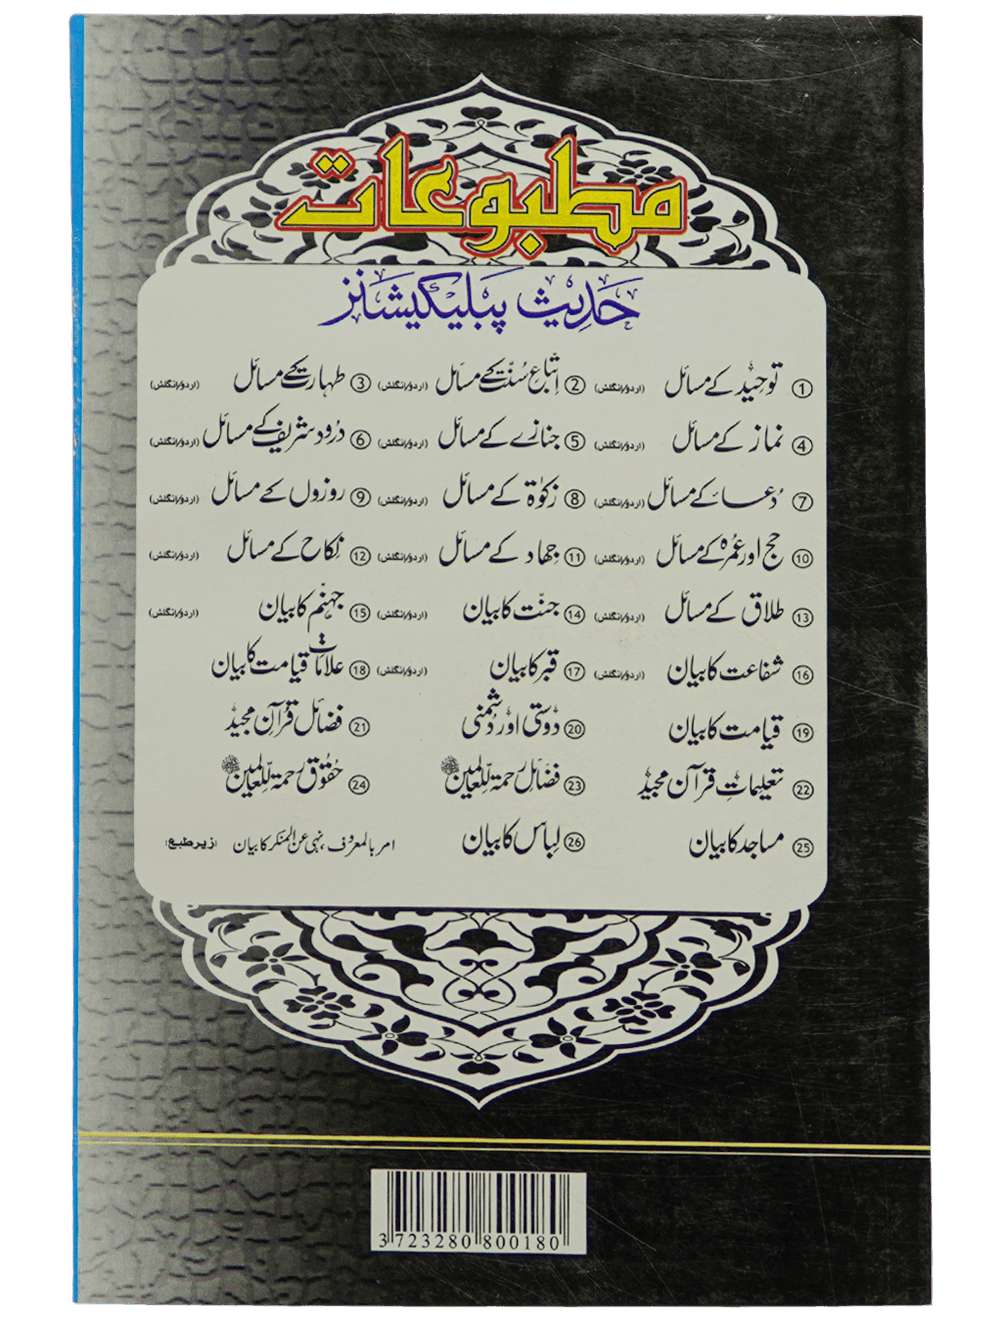 مطبوعات
حدیث پبلیکیشنز
① توحید کے مسائل (اردو/انگلش) ② اتباع سنت کے مسائل (اردو/انگلش) ③ طہارت کے مسائل (اردو/انگلش)
④ نماز کے مسائل (اردو/انگلش) ⑤ جنازے کے مسائل (اردو/انگلش) ⑥ درود شریف کے مسائل (اردو/انگلش)
⑦ دُعا کے مسائل (اردو/انگلش) ⑧ زکوٰۃ کے مسائل (اردو/انگلش) ⑨ روزوں کے مسائل (اردو/انگلش)
⑩ حج اور عمرہ کے مسائل (اردو/انگلش) ⑪ جہاد کے مسائل (اردو/انگلش) ⑫ نکاح کے مسائل (اردو/انگلش)
⑬ طلاق کے مسائل (اردو/انگلش) ⑭ جنت کا بیان (اردو/انگلش) ⑮ جہنم کا بیان (اردو/انگلش)
⑯ شفاعت کا بیان (اردو/انگلش) ⑰ قبر کا بیان (اردو/انگلش) ⑱ علامات قیامت کا بیان
⑲ قیامت کا بیان ⑳ دوستی اور دشمنی ㉑ فضائل قرآن مجید
㉒ تعلیماتِ قرآن مجید ㉓ فضائل رحمۃ للعالمین ﷺ ㉔ حقوق رحمۃ للعالمین ﷺ
㉕ مساجد کا بیان ㉖ لباس کا بیان امر بالمعروف، نہی عن المنکر کا بیان (زیر طبع)
3 723280 800180